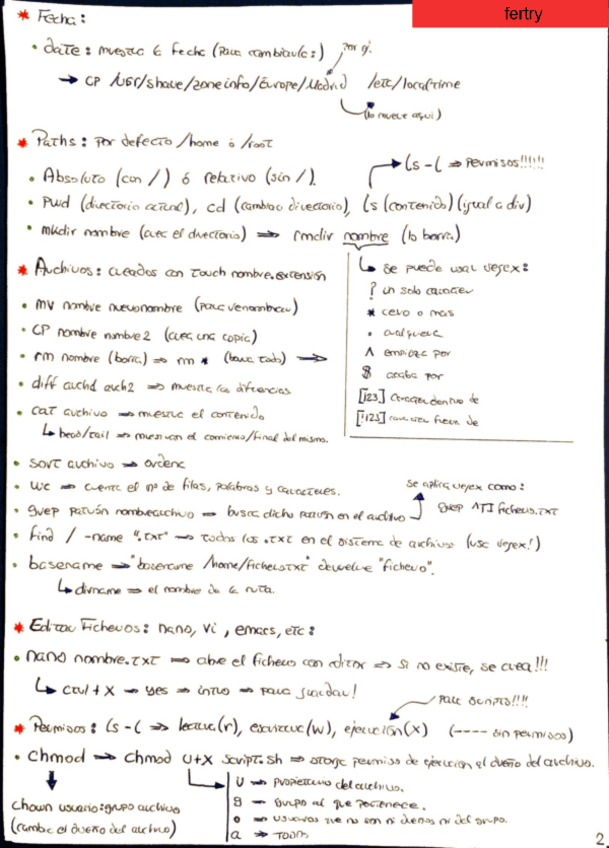 fertry
* Fecha:
• date: muestra la fecha (para cambiarla:) por ej.
→ CP /usr/share/zoneinfo/Europe/Madrid /etc/localtime
(lo mueve aquí)
* Paths: por defecto /home o /root
• Absoluto (con /) ó relativo (sin /).
→ ls -l ⇒ Permisos!!!!!
• Pwd (directorio actual), cd (cambiar directorio), ls (contenido) (igual a dir)
• mkdir nombre (crea el directorio) ⇒ rmdir nombre (lo borra)
* Archivos: creados con touch nombre.extensión
• mv nombre nuevonombre (para renombrar)
• CP nombre nombre2 (crea una copia)
• rm nombre (borra) ⇒ rm * (borra todo) ⇒
↳ se puede usar regex:
? un solo caracter
* cero o mas
. cualquiera
^ empieza por
$ acaba por
[123] caracter dentro de
[!123] caracter fuera de
• diff arch1 arch2 ⇒ muestra las diferencias
• cat archivo ⇒ muestra el contenido
↳ head/tail ⇒ muestran el comienzo/final del mismo.
• sort archivo ⇒ ordena
• wc ⇒ cuenta el nº de filas, palabras y caracteres.
se aplica regex como:
• grep patrón nombrearchivo ⇒ busca dicho patrón en el archivo
grep ^[ ficheros.txt
• find / -name "*.txt" ⇒ todos los .txt en el sistema de archivos (usa regex!)
• basename ⇒ "basename /home/fichero.txt" devuelve "fichero".
↳ dirname ⇒ el nombre de la ruta.
* Editar Ficheros: nano, vi, emacs, etc:
• nano nombre.txt ⇒ abre el fichero con editor ⇒ si no existe, se crea!!!
↳ ctrl + X ⇒ yes ⇒ intro ⇒ para guardar!
Para scripts!!!!
* Permisos: ls -l ⇒ lectura(r), escritura(w), ejecución(x) (---- sin permisos)
• chmod ⇒ chmod u+x script.sh ⇒ otorga permiso de ejecución al dueño del archivo.
chown usuario:grupo archivo
(cambia el dueño del archivo)
u ⇒ propietario del archivo.
g ⇒ grupo al que pertenece.
o ⇒ usuarios que no son ni dueños ni del grupo.
a ⇒ todos
2